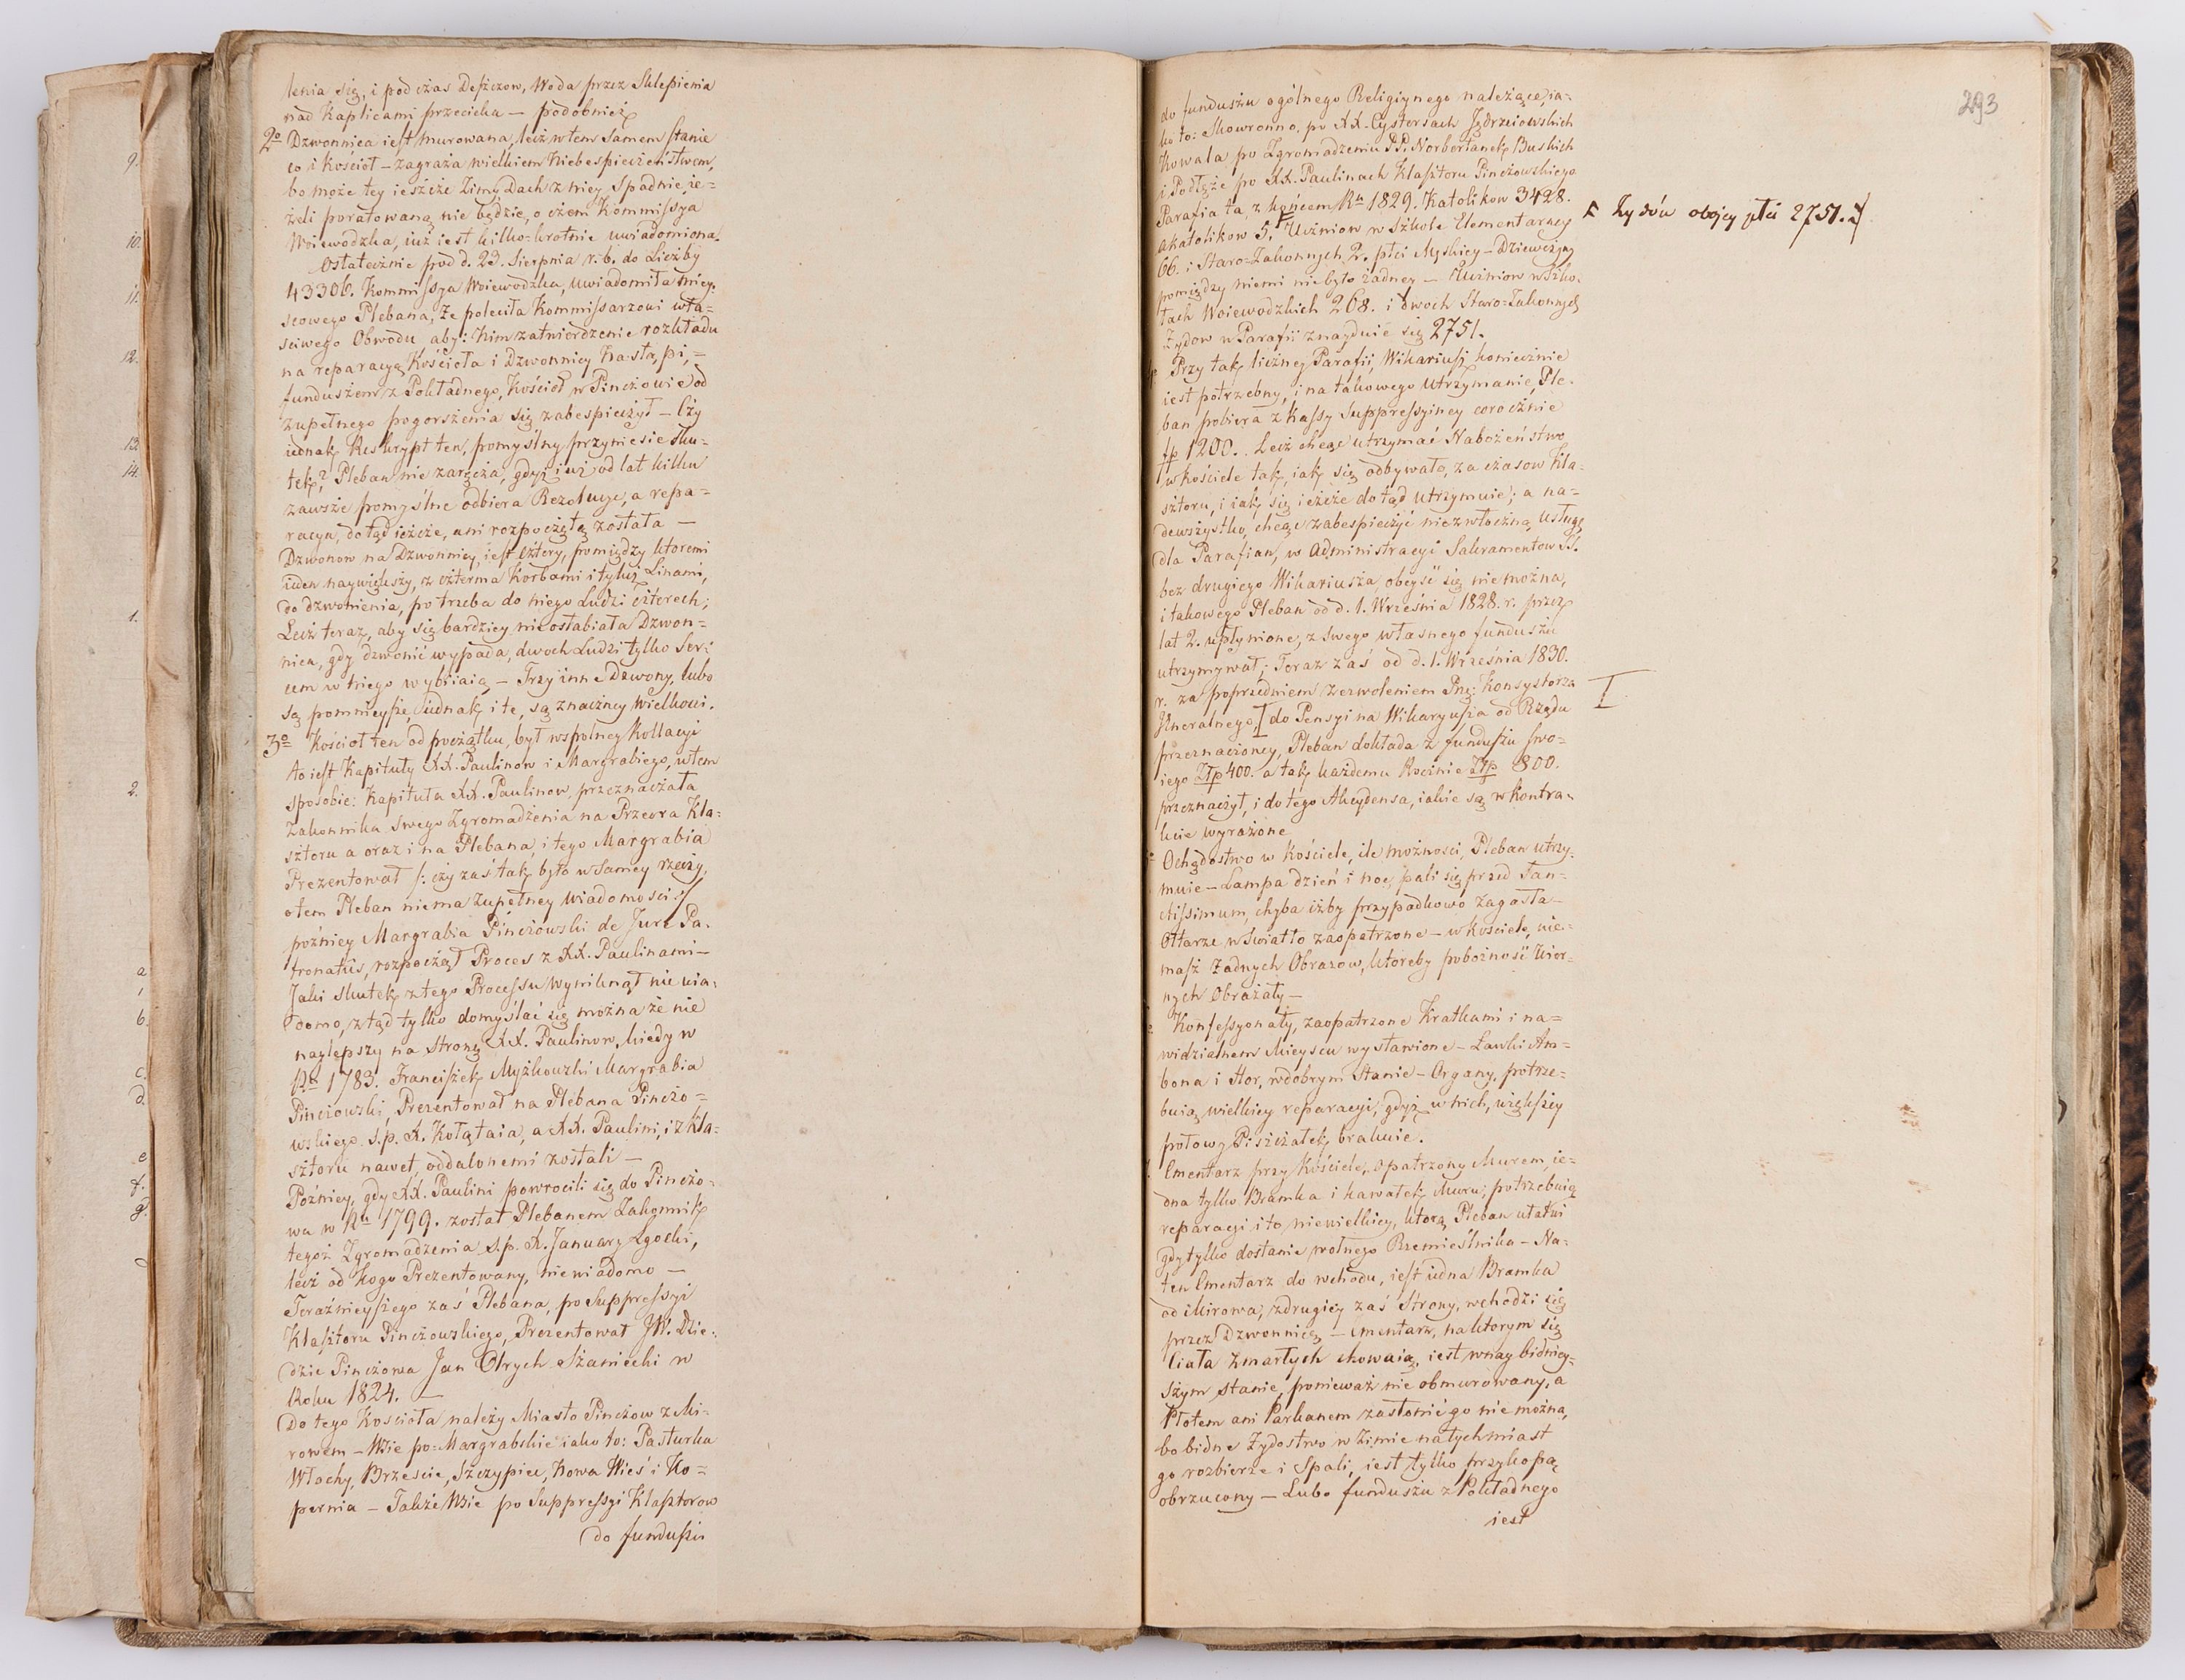 lenia się, i pod czas Deszczow, Woda przez Sklepienia
nad Kaplicami przecieka — podobnież
2o Dzwonnica iest murowana, lecz w tem samem stanie
co i kościoł — zagraża wielkiem Niebespieczeństwem,
bo może tey ieszcze Zimy Dach z niey Spadnie, ie=
żeli poratowaną nie będzie, o czem Kommissya
Woiewodzka, iuż iest kilko=krotnie uwiadomiona.
Ostatecznie pod d. 23. Sierpnia r. b. do Liczby
43306. Kommissya Woiewodzka, uwiadomiła miey=
scowego Plebana, że poleciła Kommissarzowi wła=
sciwego Obwodu, aby: Nim zatwierdzenie rozkładu
na reparacyą Kościoła i Dzwonnicy Nastąpi,=
funduszem z Pokładnego, Kościoł w Pinczowie od
zupełnego pogorszenia się zabespieczył — Czy
iednak Reskrypt ten, pomyślny przyniesie sku=
tek? Pleban nie zaręcza, gdyż iuż od lat kilku
zawsze pomyślne odbiera Rezolucye, a repa=
racya, dotąd ieszcze, ani rozpoczętą została —
Dzwonow na Dzwonnicy iest cztery, pomiędzy ktoremi
ieden naywiększy, z czterma Korbami i tyluż Linami,
do dzwonienia, potrzeba do niego Ludzi czterech;
Lecz teraz, aby się bardziey nie osłabiała Dzwon=
nica, gdy dzwonić wypada, dwoch Ludzi tylko Ser=
cem w niego wybiiaią — Trzy inne Dzwony, lubo
są pomnieysze, iednak i te, są znaczney Wielkości.
3o Kościoł ten od początku, był wspolney Kollacyi
to iest Kapituły XX. Paulinow i Margrabiego, w tem
sposobie: Kapituła XX. Paulinow, przeznaczała
Zakonnika swego Zgromadzenia na Przeora Kla=
sztoru a oraz i na Plebana, i tego Margrabia
Prezentował /: czy zaś tak było w Samey rzeczy,
otem Pleban niema zupełney Wiadomosci :/
pożniey Margrabia Pinczowski de Jure Pa=
tronatûs, rozpoczął Proces z XX. Paulinami —
Jaki skutek z tego Processu wyniknął nie wia=
domo, ztąd tylko domyślać się można że nie
naylepszy na stronę XX. Paulinow, kiedy w
Ru 1783. Franciszek Myżkowski Margrabia
Pinczowski, Prezentował na Plebana Pinczo=
wskiego ś. p. X. Kołątaia, a XX. Paulini, i z Kla=
sztoru nawet, oddalonemi zostali —
Poźniey, gdy XX. Paulini powrocili się do Pinczo=
wa w Ru 1799. został Plebanem Zakonnik
tegoż Zgromadzenia ś. p. X. January Zgocki,
lecz od kogo Prezentowany, niewiadomo —
Teraźnieyszego zaś Plebana, po Suppressyi
Klasztoru Pinczowskiego, Prezentował JW. Dzie=
dzic Pinczowa Jan Olrych Szaniecki w
Roku 1824. —
Do tego Kościoła należy Miasto Pinczow z Mi=
rowem — Wsie po=Margrabskie iako to: Pasturka
Włochy, Brzescie, Szczypiec, Nowa Wieś i Ko=
pernia — Także Wsie po Suppressyi Klasztorow
do funduszu
9.
10.
11.
12.
13.
14.
1.
2.
a
b.
c.
d.
e
f.
g.
293
do funduszu ogólnego Religiynego należące, ia=
ko to: Skowronno, po XX. Cystersach Jędrzeiowskich
Kowala po Zgromadzeniu PP. Norbertanek Buskich
i Podłęże po XX. Paulinach Klasztoru Pinczowskiego
Parafia ta, z końcem Ru 1829. Katolikow 3428.
Akatolikow 5, Uczniow w Szkole Elementarney
Żydów obojey płci 2751.
66. i Staro=Zakonnych 2. płci Męskiey — Dziewcząt
pomiędzy niemi nie było żadney — Uczniow w Szko=
łach Woiewodzkich 268. i dwoch Staro=Zakonnych
Żydow w Parafii znayduie się 2751.
Przy tak liczney Parafii, Wikariusz koniecznie
iest potrzebny, i na takowego Utrzymanie, Ple=
ban pobiera z Kassy Suppressyiney corocznie
złp 1200. Lecz chcąc utrzymać Nabożeństwo
w kościele tak, iak się odbywało, za czasow Kla=
sztoru, i iak się ieszcze dotąd utrzymuie; a na=
dewszystko, chcąc zabespieczyć niezwłoczną usługę
dla Parafian, w Administracyi Sakramentow SS.
bez drugiego Wikariusza, obeyść się nie można,
i takowego Pleban od d. 1. Września 1828. r. przez
lat 2. upłynione, z swego własnego funduszu
utrzymywał; Teraz zaś od d. 1. Września 1830.
r. za poprzedniem zezwoleniem Prz: Konsystorza
Jlneralnego, do Pensyi na Wikaryusza od Rządu
przeznaczoney, Pleban dokłada z funduszu swo=
iego Złp 400. a tak każdemu Rocznie Złp 800.
przeznaczył, i do tego Akcydensa, iakie są w kontra=
kcie wyrażone
Ochędostwo w Kościele, ile możności, Pleban utrzy=
muie — Lampa dzień i noc pali się przed San=
ctissimum, chyba iżby przypadkowo zagasła —
Ołtarze w światło zaopatrzone — w kościele, nie=
masz żadnych Obrazow, ktoreby pobożność Wier=
nych Obrażały —
Konfessyonały, zaopatrzone Kratkami i na=
widzialnem Mieyscu wystawione — Ławki Am=
bona i Hor, w dobrym Stanie — Organy, potrze=
buią wielkiey reparacyi, gdyż w nich, większey
połowy Piszczałek brakuie.
Cmentarz przy Kościele, opatrzony Murem, ie=
dna tylko Bramka i kawałek Muru, potrzebuią
reparacyi i to niewielkiey, ktorą Pleban ułatwi
gdy tylko dostanie wolnego Rzemieślnika — Na=
ten Cmentarz do wchodu, iest iedna Bramka
od Mirowa, z drugiey zaś Strony, wchodzi się
przez Dzwonnicę — Cmentarz, na ktorym się
Ciała Zmarłych chowaią, iest w nay bidniey=
szym stanie, ponieważ nie obmurowany, a
Płotem ani Parkanem zasłonić go nie można,
bo bidne Żydostwo w Zimie natychmiast
go rozbierze i Spali, iest tylko przykopą
obrzucony — Lubo funduszu z Pokładnego
iest